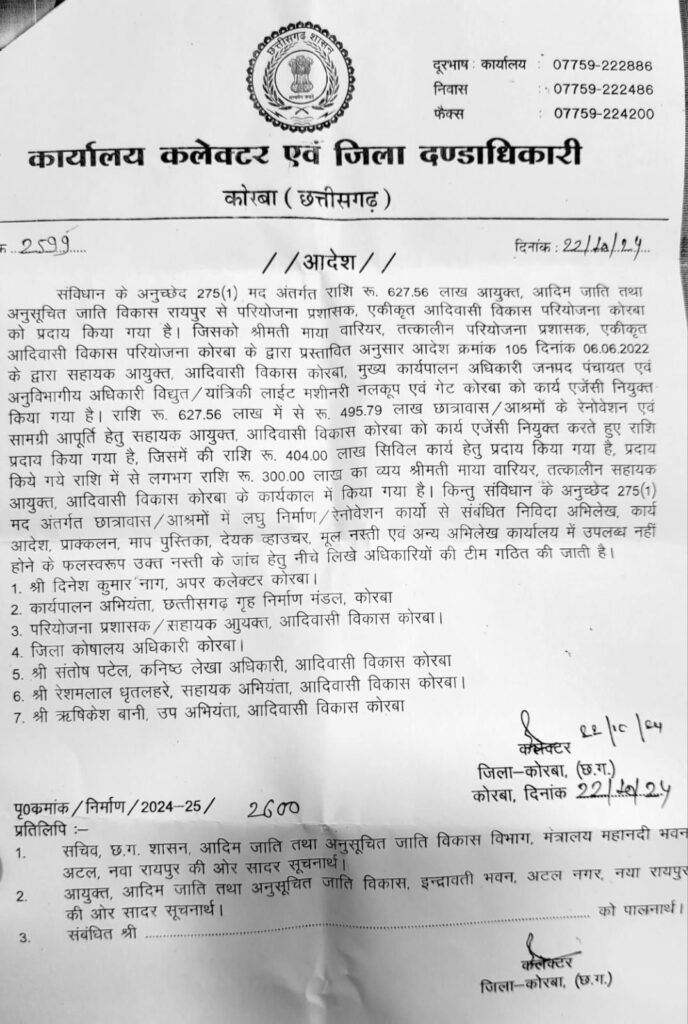 छत्तीसगढ़ शासन
दूरभाष: कार्यालय : 07759-222886
निवास : 07759-222486
फैक्स : 07759-224200
कार्यालय कलेक्टर एवं जिला दण्डाधिकारी
कोरबा ( छत्तीसगढ़ )
क 2599 दिनांक: 22/10/24
//आदेश//
संविधान के अनुच्छेद 275(1) मद अंतर्गत राशि रू. 627.56 लाख आयुक्त, आदिम जाति तथा
अनुसूचित जाति विकास रायपुर से परियोजना प्रशासक, एकीकृत आदिवासी विकास परियोजना कोरबा
को प्रदाय किया गया है। जिसको श्रीमती माया वारियर, तत्कालीन परियोजना प्रशासक, एकीकृत
आदिवासी विकास परियोजना कोरबा के द्वारा प्रस्तावित अनुसार आदेश क्रमांक 105 दिनांक 06.06.2022
के द्वारा सहायक आयुक्त, आदिवासी विकास कोरबा, मुख्य कार्यपालन अधिकारी जनपद पंचायत एवं
अनुविभागीय अधिकारी विद्युत/यांत्रिकी लाईट मशीनरी नलकूप एवं गेट कोरबा को कार्य एजेंसी नियुक्त
किया गया है। राशि रू. 627.56 लाख में से रू. 495.79 लाख छात्रावास/आश्रमों के रेनोवेशन एवं
सामग्री आपूर्ति हेतु सहायक आयुक्त, आदिवासी विकास कोरबा को कार्य एजेंसी नियुक्त करते हुए राशि
प्रदाय किया गया है, जिसमें की राशि रू. 404.00 लाख सिविल कार्य हेतु प्रदाय किया गया है, प्रदाय
किये गये राशि में से लगभग राशि रू. 300.00 लाख का व्यय श्रीमती माया वारियर, तत्कालीन सहायक
आयुक्त, आदिवासी विकास कोरबा के कार्यकाल में किया गया है। किन्तु संविधान के अनुच्छेद 275(1)
मद अंतर्गत छात्रावास/आश्रमों में लघु निर्माण/रेनोवेशन कार्यो से संबंधित निविदा अभिलेख, कार्य
आदेश, प्राक्कलन, माप पुस्तिका, देयक व्हाउचर, मूल नस्ती एवं अन्य अभिलेख कार्यालय में उपलब्ध नहीं
होने के फलस्वरूप उक्त नस्ती के जांच हेतु नीचे लिखे अधिकारियों की टीम गठित की जाती है।
1. श्री दिनेश कुमार नाग, अपर कलेक्टर कोरबा।
2. कार्यपालन अभियंता, छत्तीसगढ़ गृह निर्माण मंडल, कोरबा
3. परियोजना प्रशासक/सहायक आयुक्त, आदिवासी विकास कोरबा।
4. जिला कोषालय अधिकारी कोरबा।
5. श्री संतोष पटेल, कनिष्ठ लेखा अधिकारी, आदिवासी विकास कोरबा
6. श्री रेशमलाल धृतलहरे, सहायक अभियंता, आदिवासी विकास कोरबा।
7. श्री ऋषिकेश बानी, उप अभियंता, आदिवासी विकास कोरबा
22/10/24
कलेक्टर
जिला–कोरबा, (छ.ग.)
कोरबा, दिनांक 22/10/24
पृ0कमांक/निर्माण/2024-25/ 2600
प्रतिलिपि :–
1. सचिव, छ.ग. शासन, आदिम जाति तथा अनुसूचित जाति विकास विभाग, मंत्रालय महानदी भवन
अटल, नवा रायपुर की ओर सादर सूचनार्थ।
2. आयुक्त, आदिम जाति तथा अनुसूचित जाति विकास, इन्द्रावती भवन, अटल नगर, नया रायपुर
की ओर सादर सूचनार्थ।
3. संबंधित श्री ........................................ को पालनार्थ।
कलेक्टर
जिला–कोरबा, (छ.ग.)